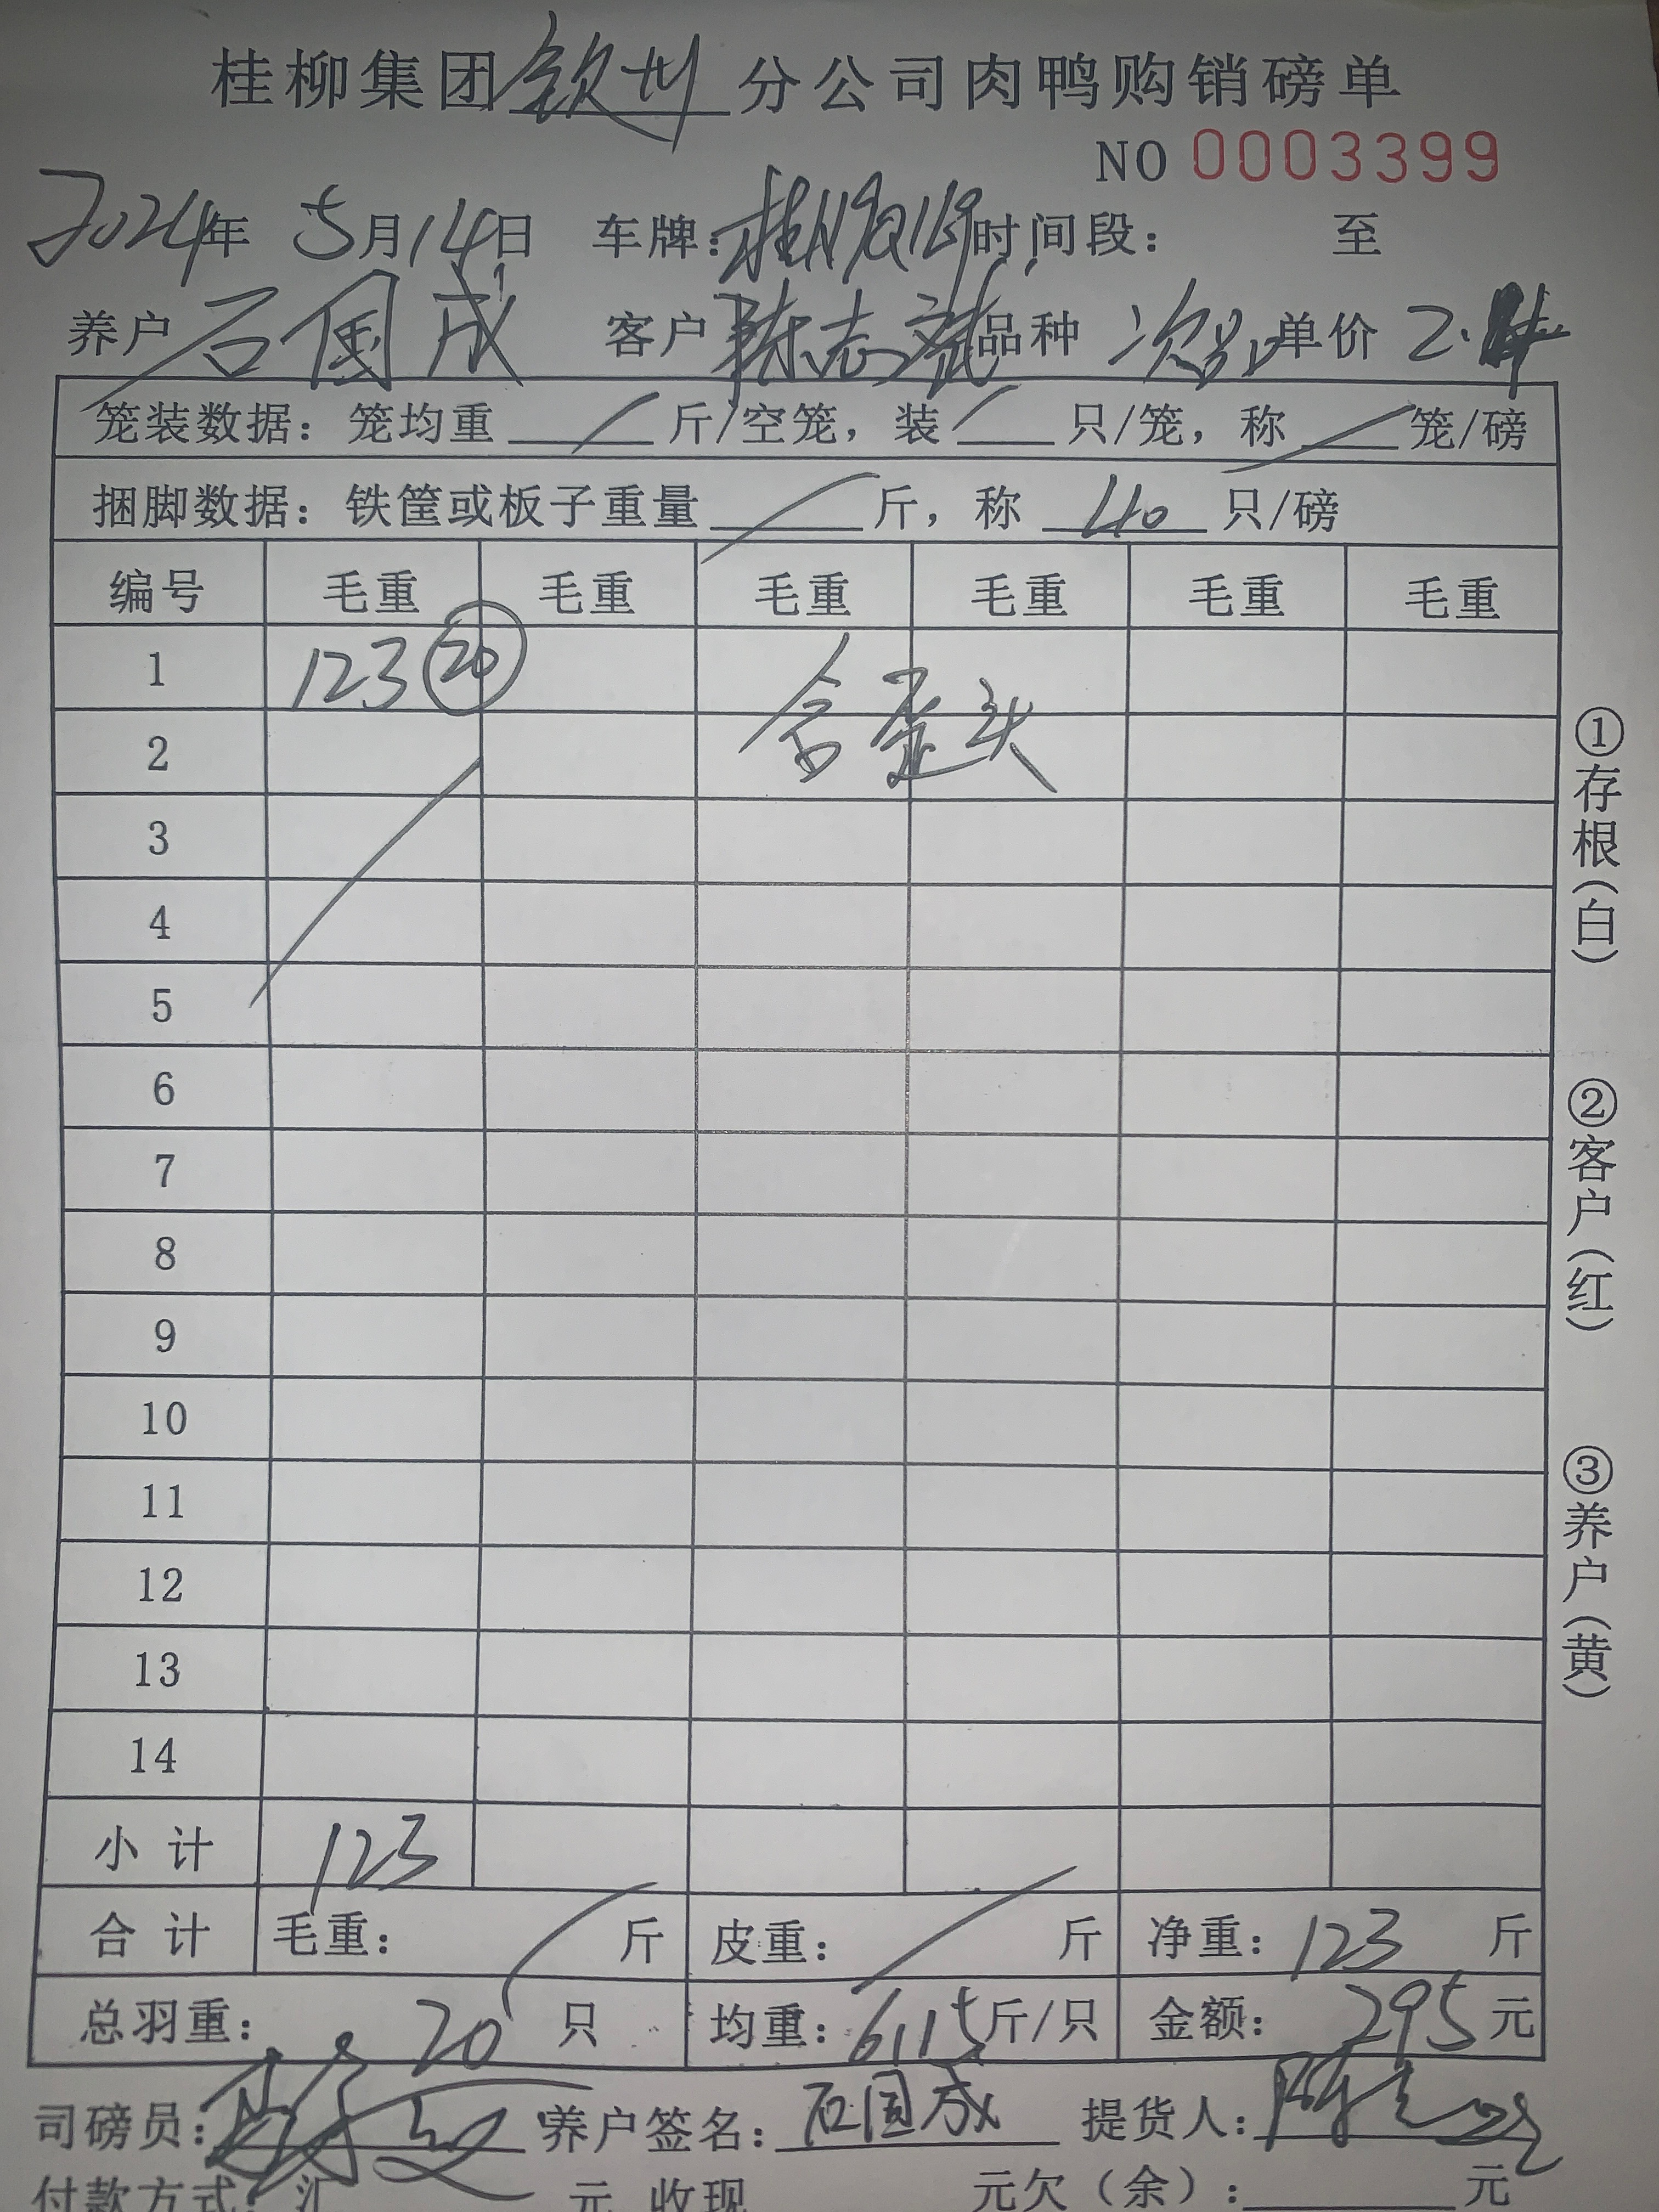 桂柳集团钦州分公司肉鸭购销磅单
NO 0003399
2024年 5月14日 车牌: 时间段: 至
养户 石国成 客户 陈志斌 品种 次品 单价 2.4
笼装数据: 笼均重 斤/空笼, 装 只/笼, 称 笼/磅
捆脚数据: 铁筐或板子重量 斤, 称 40 只/磅
编号 毛重 毛重 毛重 毛重 毛重 毛重
1 123 20
含歪头
2
3
4
5
6
7
8
9
10
11
12
13
14
小计 123
合计 毛重: 斤 皮重: 斤 净重: 123 斤
总羽重: 20 只 均重: 6.15 斤/只 金额: 295 元
司磅员: 养户签名: 石国成 提货人:
付款方式: 汇 元 收现 元欠(余): 元
①存根(白)
②客户(红)
③养户(黄)